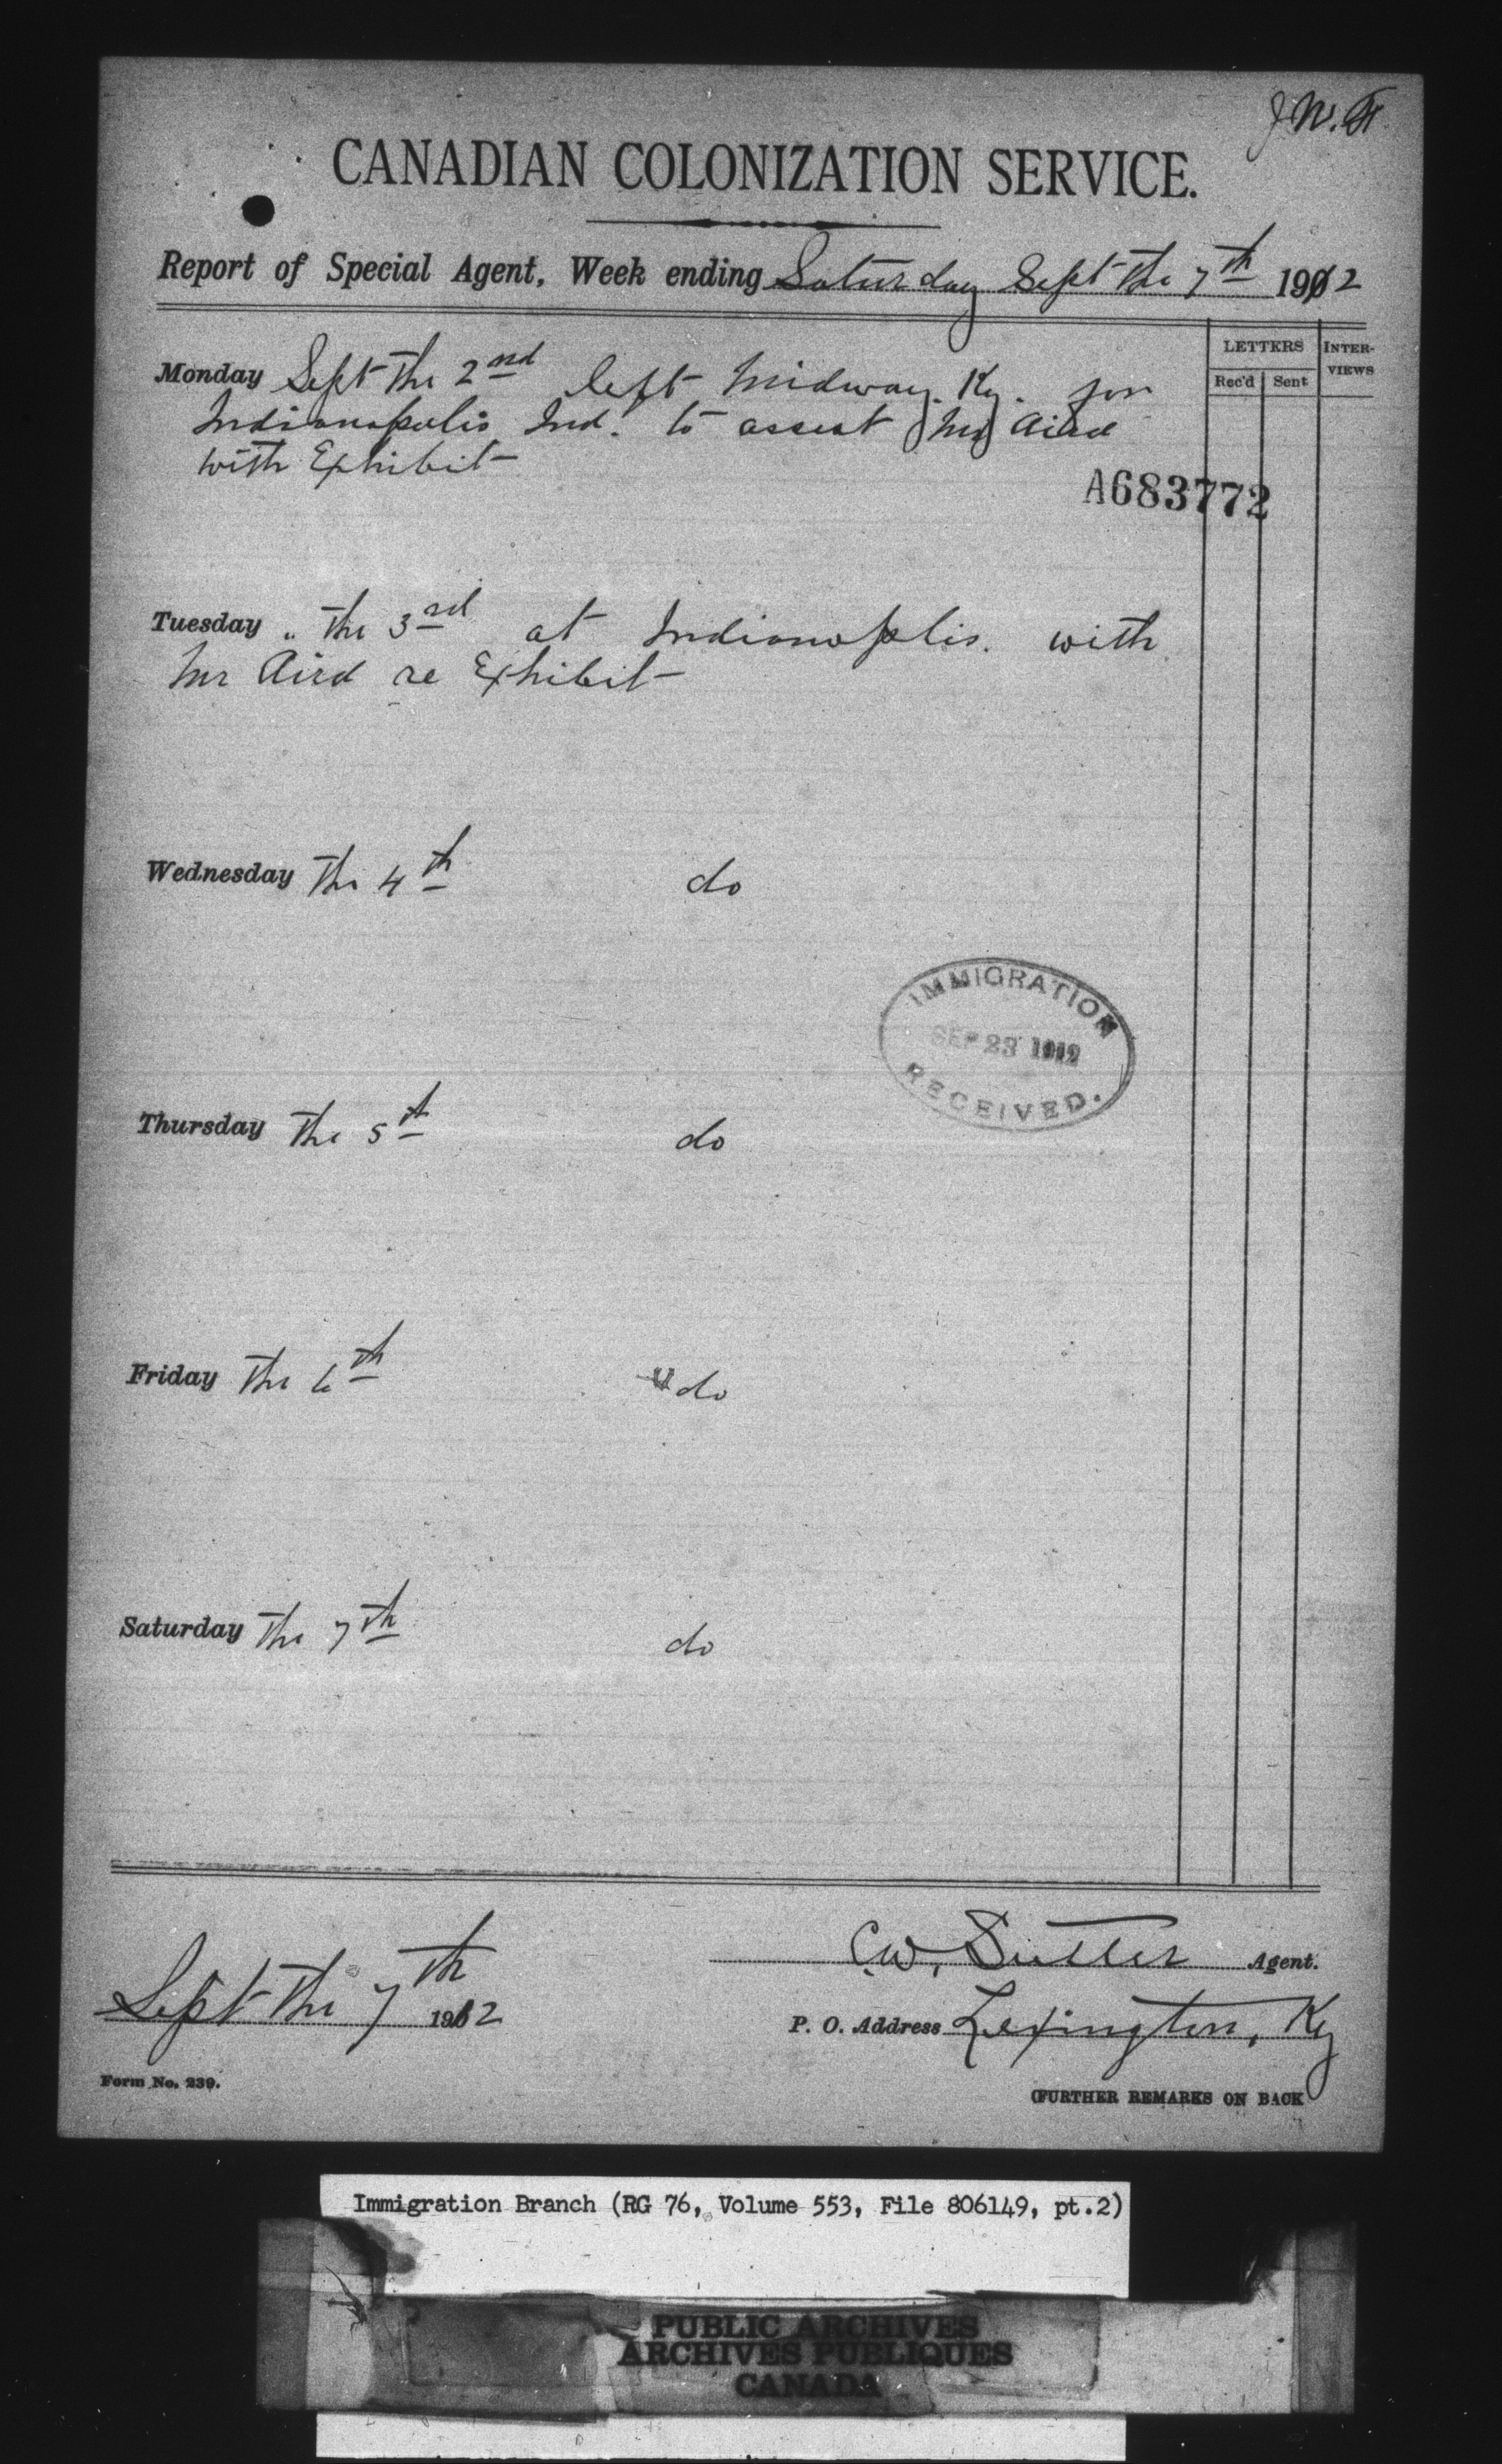 J.W.H.
CANADIAN COLONIZATION SERVICE.
Report of Special Agent, Week ending Saturday Sept the 7th 1912
LETTERS INTER-VIEWS
Rec'd Sent
Monday Sept the 2nd left Midway. Ky. for
Indianapolis Ind. to assist Mr Aird
with Exhibit
A683772
Tuesday " the 3rd at Indianoplis. with
Mr Aird re Exhibit
Wednesday the 4th do
IMMIGRATION
SEP 23 1912
RECEIVED.
Thursday the 5th do
Friday the 6th do
Saturday the 7th do
C.W. Sutter Agent.
Sept the 7th 1912
P. O. Address Lexington, Ky
Form No. 239.
(FURTHER REMARKS ON BACK
Immigration Branch (RG 76, Volume 553, File 806149, pt.2)
PUBLIC ARCHIVES
ARCHIVES PUBLIQUES
CANADA